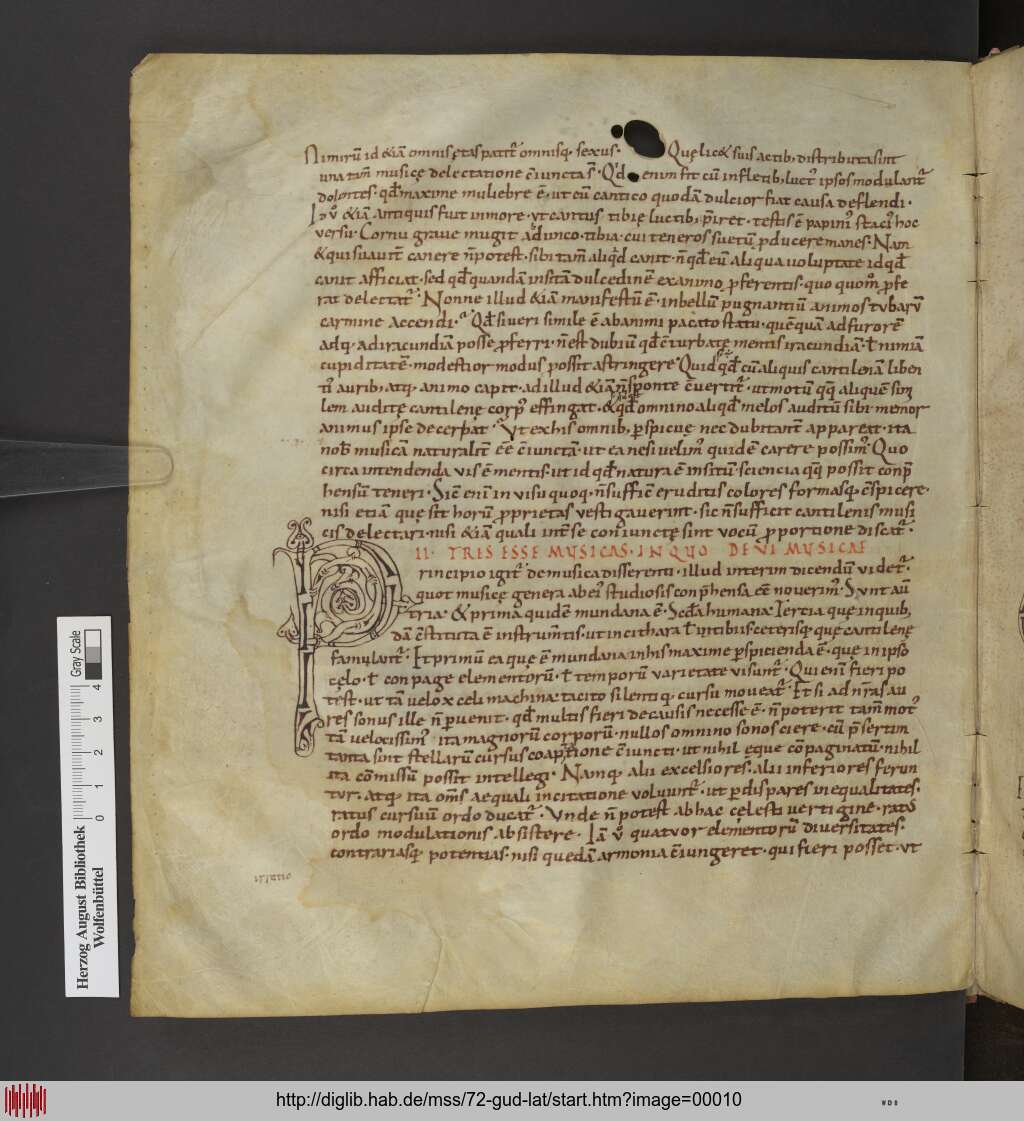 Nimirū id &iā omnis ętas patit᷑ omnisq; sexus· Quę lic& suis actib; distributa sint
una tam̄ musicę delectatione c̄iuncta s̄· Qd enim fit cū in fletib; luct᷒ ipsos modulant᷑
dolentes· qd̄ maxime muliebre ē· ut cū cantico quodā dulcior fiat causa deflendi·
&iā antiquis fuit in more· ut cantus tibię luctib; p̄iret· Testis ē papini᷒ staci᷒ hoc
versu· Cornu graue mugit adunco· tibia· cui teneros suetū ꝓducere manes· Nam
& qui suaut̄ canere n̄ potest· sibi tam̄ aliqd canit· n̄ qd̄ eū aliqua uoluptate id qd̄
canit afficiat· sed qd̄ quandā insitā dulcedinē ex animo ꝓferentis· quo quom̄ ꝓfe
rat delectat᷑· Nonne illud &iā manifestū ē· in bellū pugnantiū animos tubarū
carmine accendi· Qd̄ si ueri simile ē ab animi pacato statu· quēquā ad furorē
adq; ad iracundiā posse ꝓferri· n̄ est dubiū qd̄ c̄turbatę mentis iracundiā· ł nimiā
cupiditatē· modestior modus possit astringere· Quid qd̄ cū aliquis cantilenā liben
ti᷒ aurib; atq; animo capit· ad illud &iā n̄ sponte c̄uertit᷑· ut motū qq; aliquē simi
lem auditę cantilenę corp᷒ effingat· & qd̄ omnino aliqd̄ melos auditū sibi memor
animus ipse decerpat· Ut ex his omnib; ꝑspicuę nec dubitant̄ appareat· ita
nob̄ musicā naturalit̄ ēē c̄iunctā· ut ea nesi uelim᷒ quidē carere possim᷒· Quo
circa intendenda vis ē mentis· ut id qd̄ natura ē insitū· sciencia qq; possit conp̄
hensū teneri· Sic̄ enī in visu quoq; n̄ suffic̄ eruditis colores formasq; c̄spicere·
nisi etiam quę sit horū ꝓprietas vestigauerint· sic n̄ sufficit cantilenis musi
cis delectari· nisi &iā quali int̄ se coniunctę sint vocū ꝓportione discat᷑·
II· TRIS ESSE MUSICAS· IN QUO DE VI MUSICAE
Principio igit᷑ de musica disserenti· illud interim dicendū videt᷑·
quot musicę genera ab ei᷒ studiosis conp̄hensa ēē nouerim᷒· Sunt aū
tria· & prima quidē mundana ē· Sc̄da humana· Tertia quę in quib;
dā c̄stituta ē instrum̄tis· ut in cithara ł in tibiis· ceterisq; quę cantilenę
famulant᷑· Et primū ea quę ē mundana in his maxime ꝑspicienda ē· quę in ipso
cęlo· ł conpage elementorū· ł temporū varietate visunt᷑· Qui enī fieri po
test· ut tā velox celi machina· tacito silentiq; cursu moueat᷑· Et si ad nr̄as au
res sonus ille n̄ ꝑuenit· qd̄ multis fieri de causis necesse ē· n̄ poterit tam̄ mot᷒
tā velocissim᷒· ita magnorū corporū· nullos omnino sonos ciere· cū p̄sertim
tanta sint stellarū cursus coaptatione c̄iuncti· ut nihil eque cōpaginatū· nihil
ita cōmissū possit intellegi· Namq; alii excelsiores· alii inferiores ferun
tur· atq; ita om̄s aequali incitatione voluunt᷑· ut ꝑ dispares inequalitates·
ratus cursuū ordo ducat᷑· Unde n̄ potest ab hac cęlesti vertigine· ratus
ordo modulationis absistere· Iā v̊ quatuor elementorū diuersitates·
contrariasq; potentias· nisi quędā armonia c̄iungeret· qui fieri posset· ut
Herzog August Bibliothek
Wolfenbüttel
0 1 2 3 4
Gray Scale
http://diglib.hab.de/mss/72-gud-lat/start.htm?image=00010